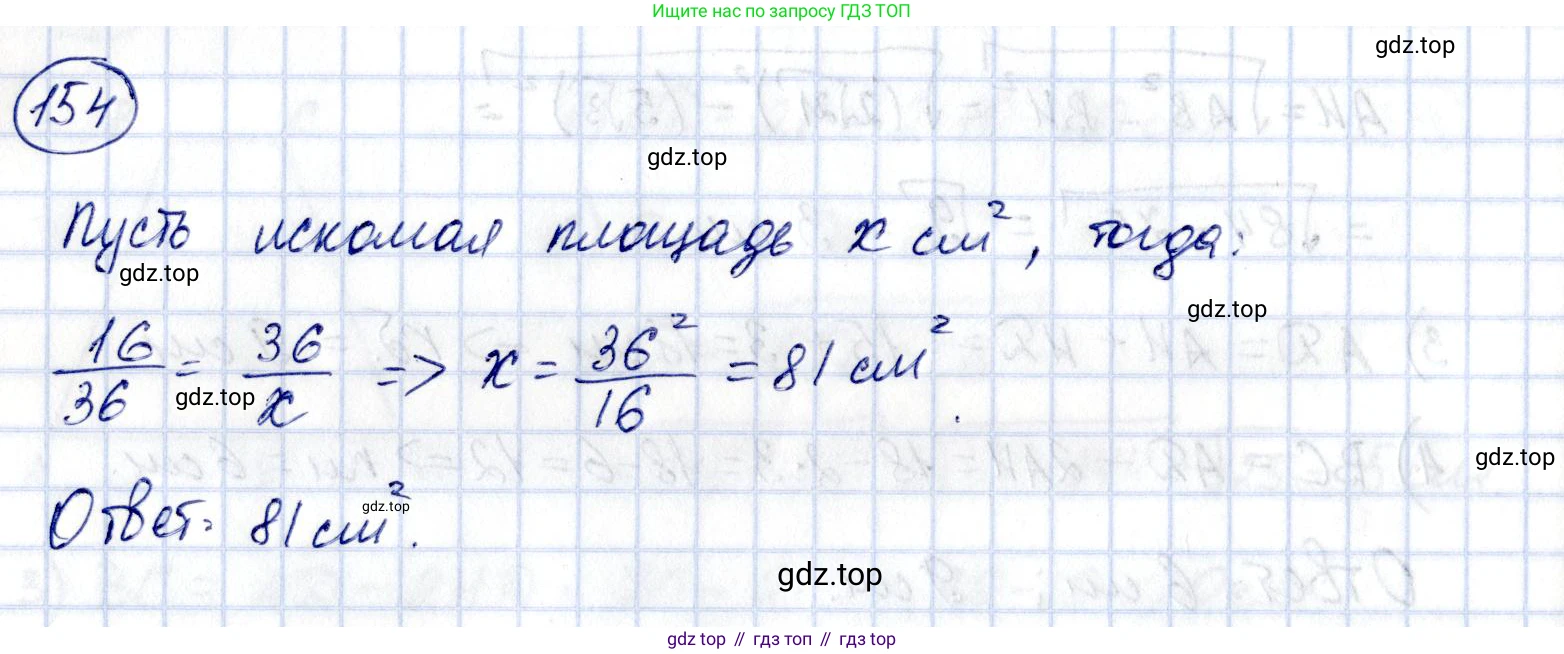 Ищите нас по запросу ГДЗ ТОП
gdz.top
154
gdz.top
Пусть искомая площадь x см², тогда:
gdz.top
gdz.top
16/36 = 36/x => x = 36²/16 = 81 см².
gdz.top
gdz.top
Ответ: 81 см².
gdz.top
gdz.top
gdz top // гдз топ // гдз top